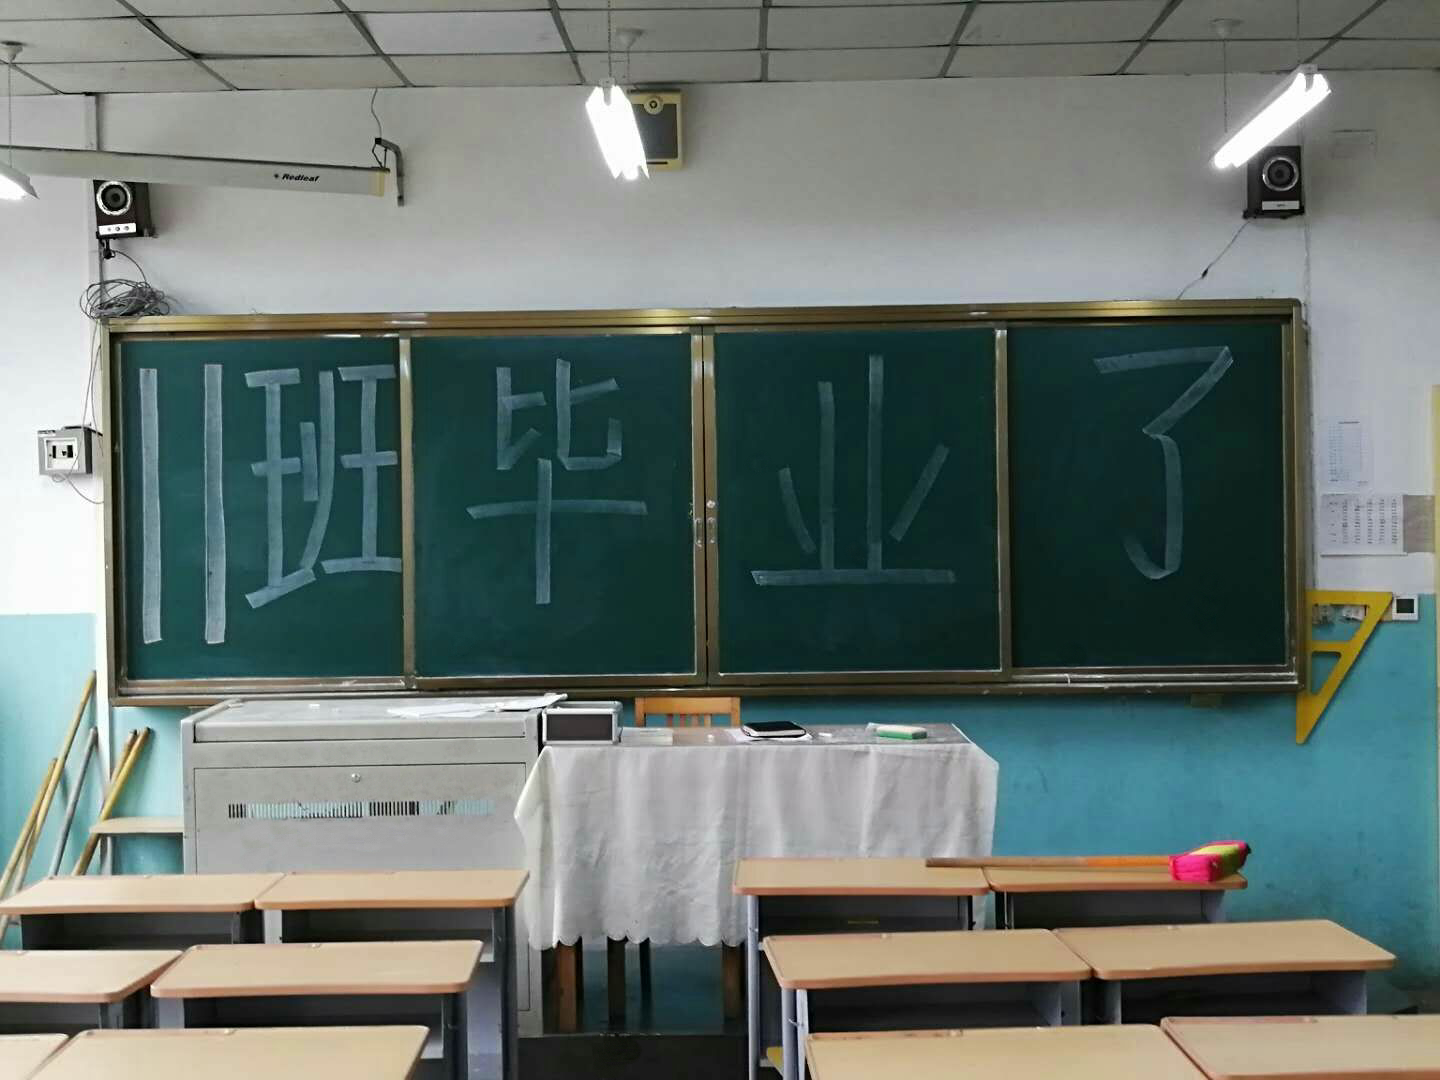 Redleaf
11班毕业了